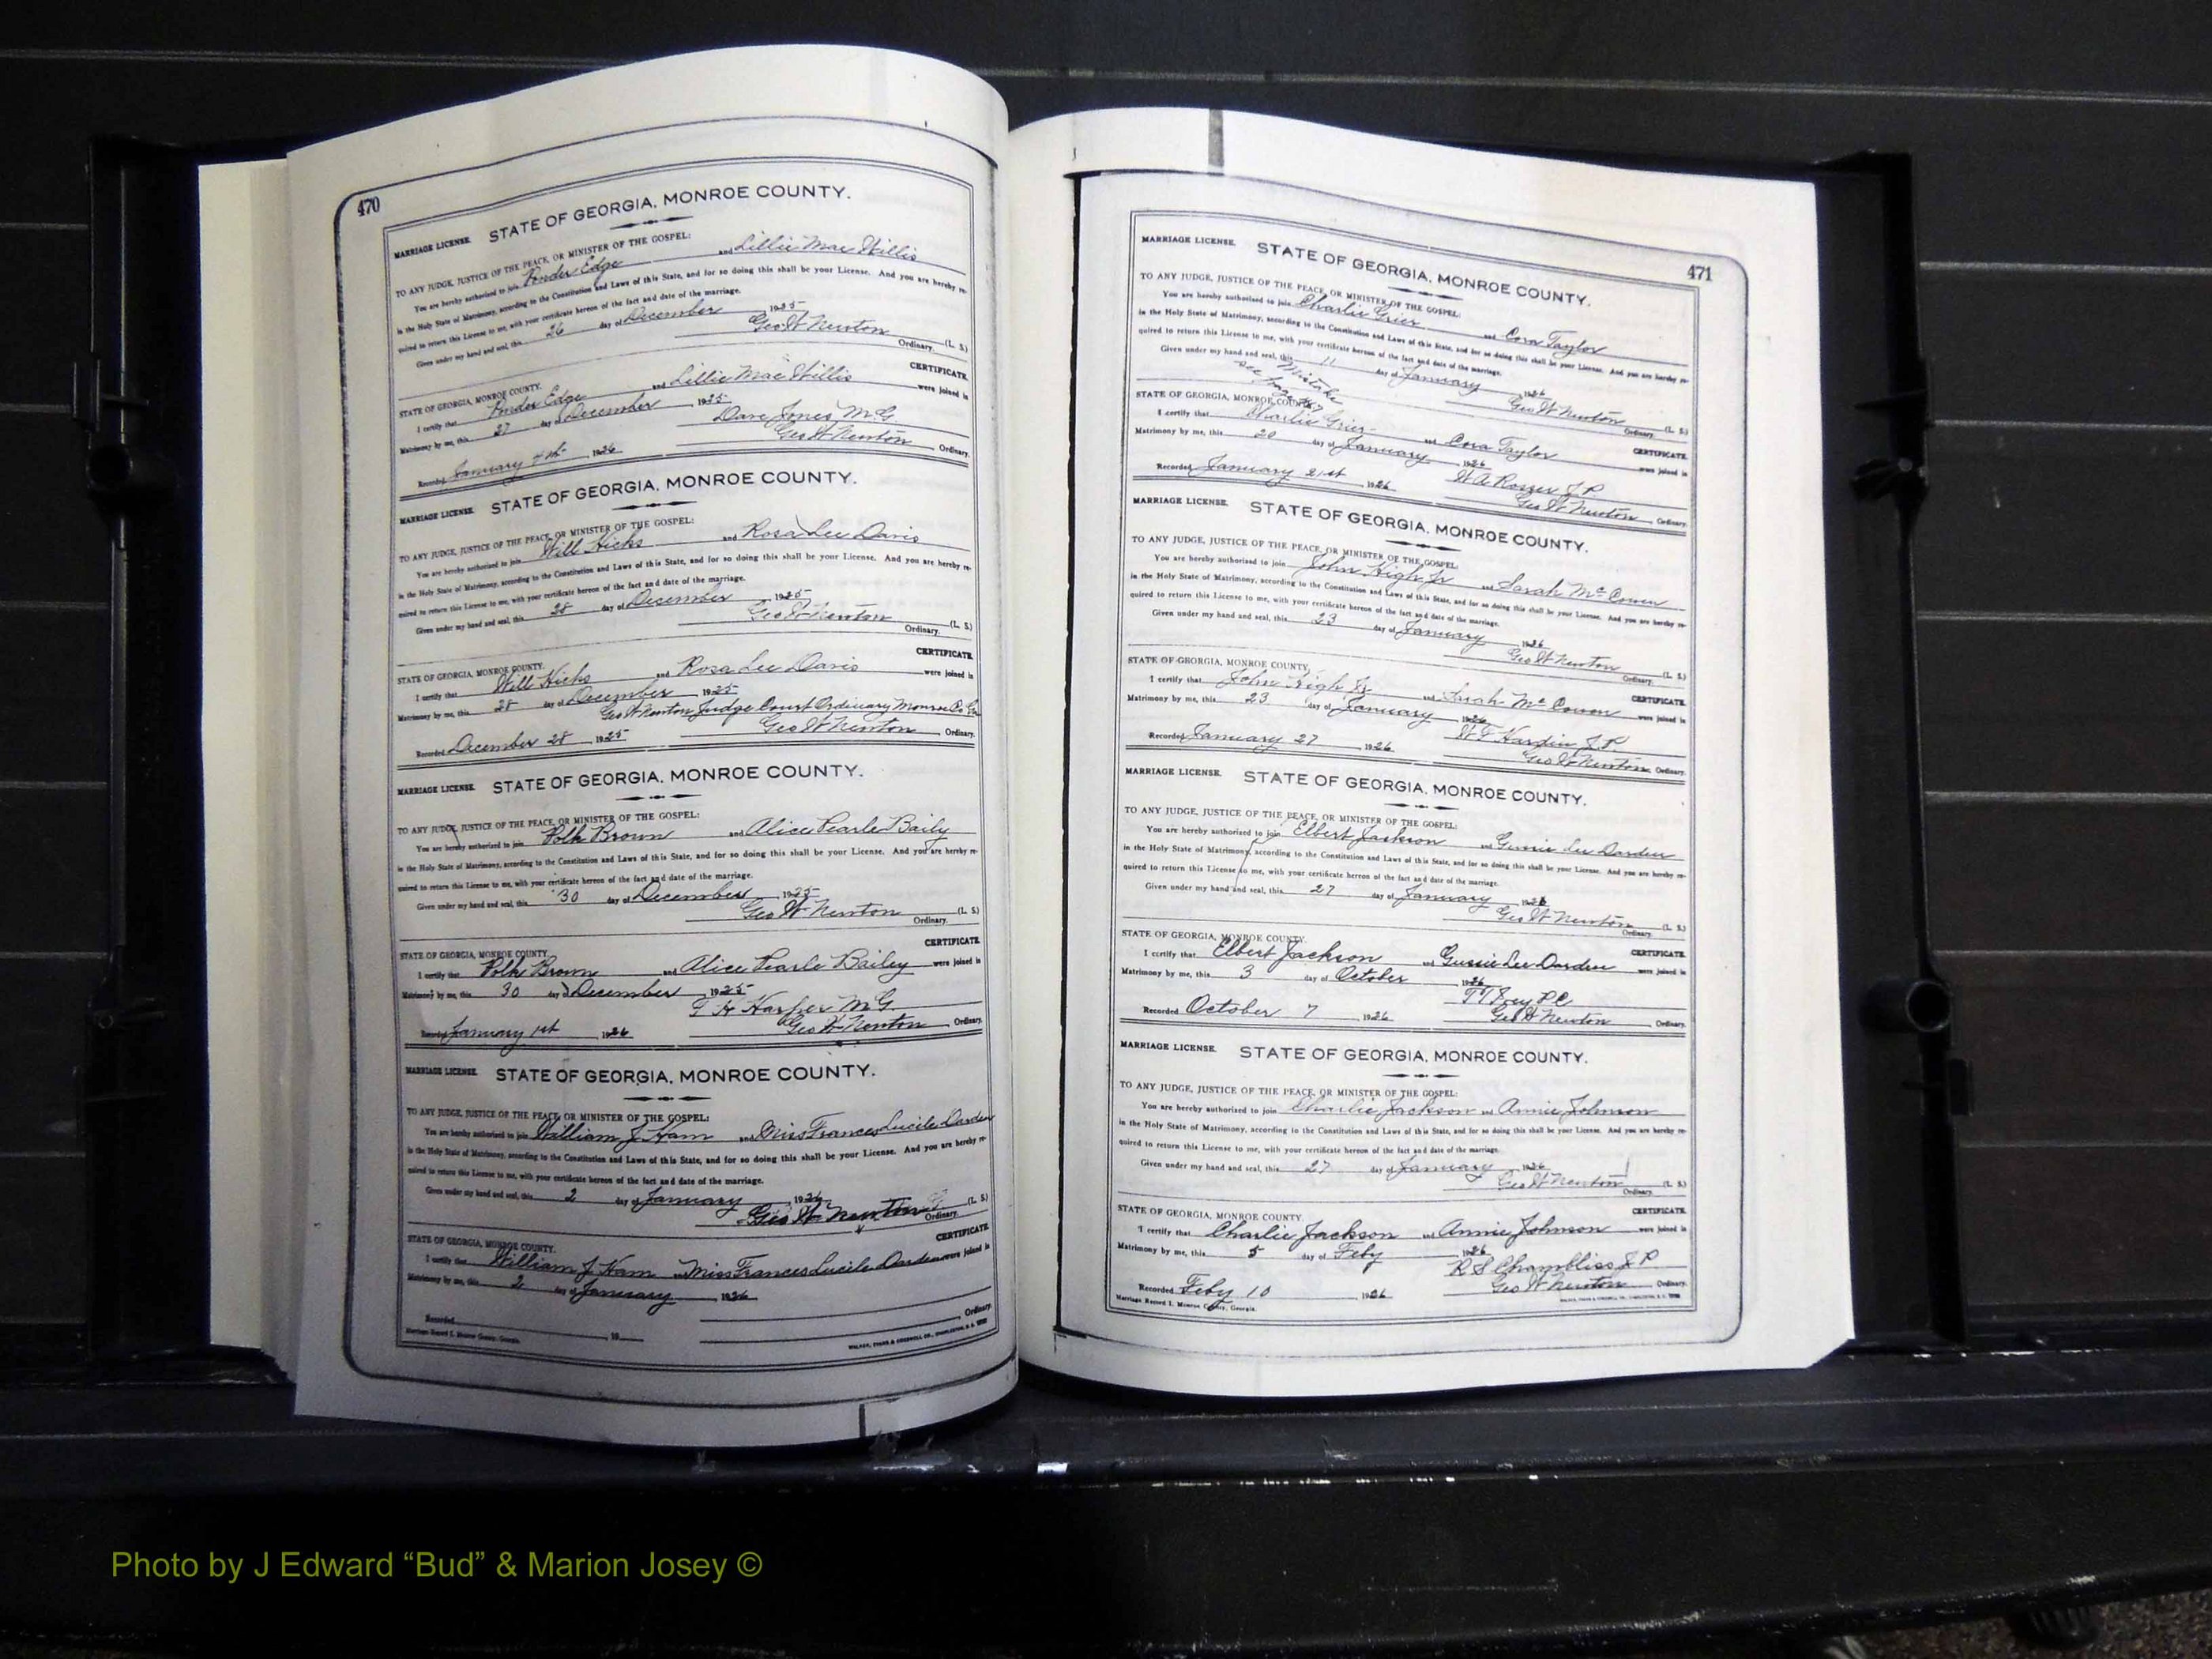 470
STATE OF GEORGIA, MONROE COUNTY.
MARRIAGE LICENSE.
TO ANY JUDGE, JUSTICE OF THE PEACE, OR MINISTER OF THE GOSPEL:
You are hereby authorized to join Ponder Edge and Lillie Mae Willis
in the Holy State of Matrimony, according to the Constitution and Laws of this State, and for so doing this shall be your License. And you are hereby re-
quired to return this License to me, with your certificate hereon of the fact and date of the marriage.
Given under my hand and seal, this 26 day of December 1925
Geo W Newton (L. S.)
Ordinary.
CERTIFICATE.
STATE OF GEORGIA, MONROE COUNTY.
I certify that Ponder Edge and Lillie Mae Willis were joined in
Matrimony by me, this 27 day of December 1925
Dave Jones M.G.
Recorded January 4th 1926 Geo W Newton Ordinary.
MARRIAGE LICENSE. STATE OF GEORGIA, MONROE COUNTY.
TO ANY JUDGE, JUSTICE OF THE PEACE, OR MINISTER OF THE GOSPEL:
You are hereby authorized to join Will Hicks and Rosa Lee Davis
in the Holy State of Matrimony, according to the Constitution and Laws of this State, and for so doing this shall be your License. And you are hereby re-
quired to return this License to me, with your certificate hereon of the fact and date of the marriage.
Given under my hand and seal, this 28 day of December 1925
Geo W Newton (L. S.)
Ordinary.
CERTIFICATE.
STATE OF GEORGIA, MONROE COUNTY.
I certify that Will Hicks and Rosa Lee Davis were joined in
Matrimony by me, this 28 day of December 1925
Geo W Newton Judge Court Ordinary Monroe Co Ga
Recorded December 28 1925 Geo W Newton Ordinary.
MARRIAGE LICENSE. STATE OF GEORGIA, MONROE COUNTY.
TO ANY JUDGE, JUSTICE OF THE PEACE, OR MINISTER OF THE GOSPEL:
You are hereby authorized to join Polk Brown and Alice Pearle Baily
in the Holy State of Matrimony, according to the Constitution and Laws of this State, and for so doing this shall be your License. And you are hereby re-
quired to return this License to me, with your certificate hereon of the fact and date of the marriage.
Given under my hand and seal, this 30 day of December 1925
Geo W Newton (L. S.)
Ordinary.
CERTIFICATE.
STATE OF GEORGIA, MONROE COUNTY.
I certify that Polk Brown and Alice Pearle Bailey were joined in
Matrimony by me, this 30 day of December 1925
Harper M G.
Recorded January 1st 1926 Geo W Newton Ordinary.
MARRIAGE LICENSE. STATE OF GEORGIA, MONROE COUNTY.
TO ANY JUDGE, JUSTICE OF THE PEACE, OR MINISTER OF THE GOSPEL:
You are hereby authorized to join William J Ham and Miss Frances Lucile Darden
in the Holy State of Matrimony, according to the Constitution and Laws of this State, and for so doing this shall be your License. And you are hereby re-
quired to return this License to me, with your certificate hereon of the fact and date of the marriage.
Given under my hand and seal, this 2 day of January 1926
Geo W Newton (L. S.)
Ordinary.
CERTIFICATE
STATE OF GEORGIA, MONROE COUNTY.
I certify that William J Ham and Miss Frances Lucile Darden were joined in
Matrimony by me, this 2 day of January 1926
Recorded 19 Ordinary.
Marriage Record I. Monroe County, Georgia. WALKER, EVANS & COGSWELL CO., CHARLESTON, S. C.
471
MARRIAGE LICENSE. STATE OF GEORGIA, MONROE COUNTY.
TO ANY JUDGE, JUSTICE OF THE PEACE, OR MINISTER OF THE GOSPEL:
You are hereby authorized to join Charlie Grier and Cora Taylor
in the Holy State of Matrimony, according to the Constitution and Laws of this State, and for so doing this shall be your License. And you are hereby re-
quired to return this License to me, with your certificate hereon of the fact and date of the marriage.
Given under my hand and seal, this 11 day of January 1926
Mistake
see page
Geo W Newton (L. S.)
Ordinary.
CERTIFICATE
STATE OF GEORGIA, MONROE COUNTY.
I certify that Charlie Grier and Cora Taylor were joined in
Matrimony by me, this 20 day of January 1926
W A Rosser J P
Recorded January 21st 1926 Geo W Newton Ordinary.
MARRIAGE LICENSE. STATE OF GEORGIA, MONROE COUNTY.
TO ANY JUDGE, JUSTICE OF THE PEACE, OR MINISTER OF THE GOSPEL:
You are hereby authorized to join John High Jr and Sarah McCowen
in the Holy State of Matrimony, according to the Constitution and Laws of this State, and for so doing this shall be your License. And you are hereby re-
quired to return this License to me, with your certificate hereon of the fact and date of the marriage.
Given under my hand and seal, this 23 day of January 1926
Geo W Newton (L. S.)
Ordinary.
CERTIFICATE
STATE OF GEORGIA, MONROE COUNTY.
I certify that John High Jr and Sarah McCowen were joined in
Matrimony by me, this 23 day of January 1926
W F Hardin J.P.
Recorded January 27 1926 Geo W Newton Ordinary.
MARRIAGE LICENSE. STATE OF GEORGIA, MONROE COUNTY.
TO ANY JUDGE, JUSTICE OF THE PEACE, OR MINISTER OF THE GOSPEL:
You are hereby authorized to join Elbert Jackson and Gussie Lee Darden
in the Holy State of Matrimony, according to the Constitution and Laws of this State, and for so doing this shall be your License. And you are hereby re-
quired to return this License to me, with your certificate hereon of the fact and date of the marriage.
Given under my hand and seal, this 27 day of January 1926
Geo W Newton (L. S.)
Ordinary.
CERTIFICATE
STATE OF GEORGIA, MONROE COUNTY.
I certify that Elbert Jackson and Gussie Lee Darden were joined in
Matrimony by me, this 3 day of October 1926
Recorded October 7 1926 Geo W Newton Ordinary.
MARRIAGE LICENSE. STATE OF GEORGIA, MONROE COUNTY.
TO ANY JUDGE, JUSTICE OF THE PEACE, OR MINISTER OF THE GOSPEL:
You are hereby authorized to join Charlie Jackson and Annie Johnson
in the Holy State of Matrimony, according to the Constitution and Laws of this State, and for so doing this shall be your License. And you are hereby re-
quired to return this License to me, with your certificate hereon of the fact and date of the marriage.
Given under my hand and seal, this 27 day of January 1926
Geo W Newton (L. S.)
Ordinary.
CERTIFICATE
STATE OF GEORGIA, MONROE COUNTY.
I certify that Charlie Jackson and Annie Johnson were joined in
Matrimony by me, this 5 day of Feby 1926
R S Chambliss J P
Recorded Feby 10 1926 Geo W Newton Ordinary.
Marriage Record I. Monroe County, Georgia. WALKER, EVANS & COGSWELL CO., CHARLESTON, S. C.
Photo by J Edward “Bud” & Marion Josey ©